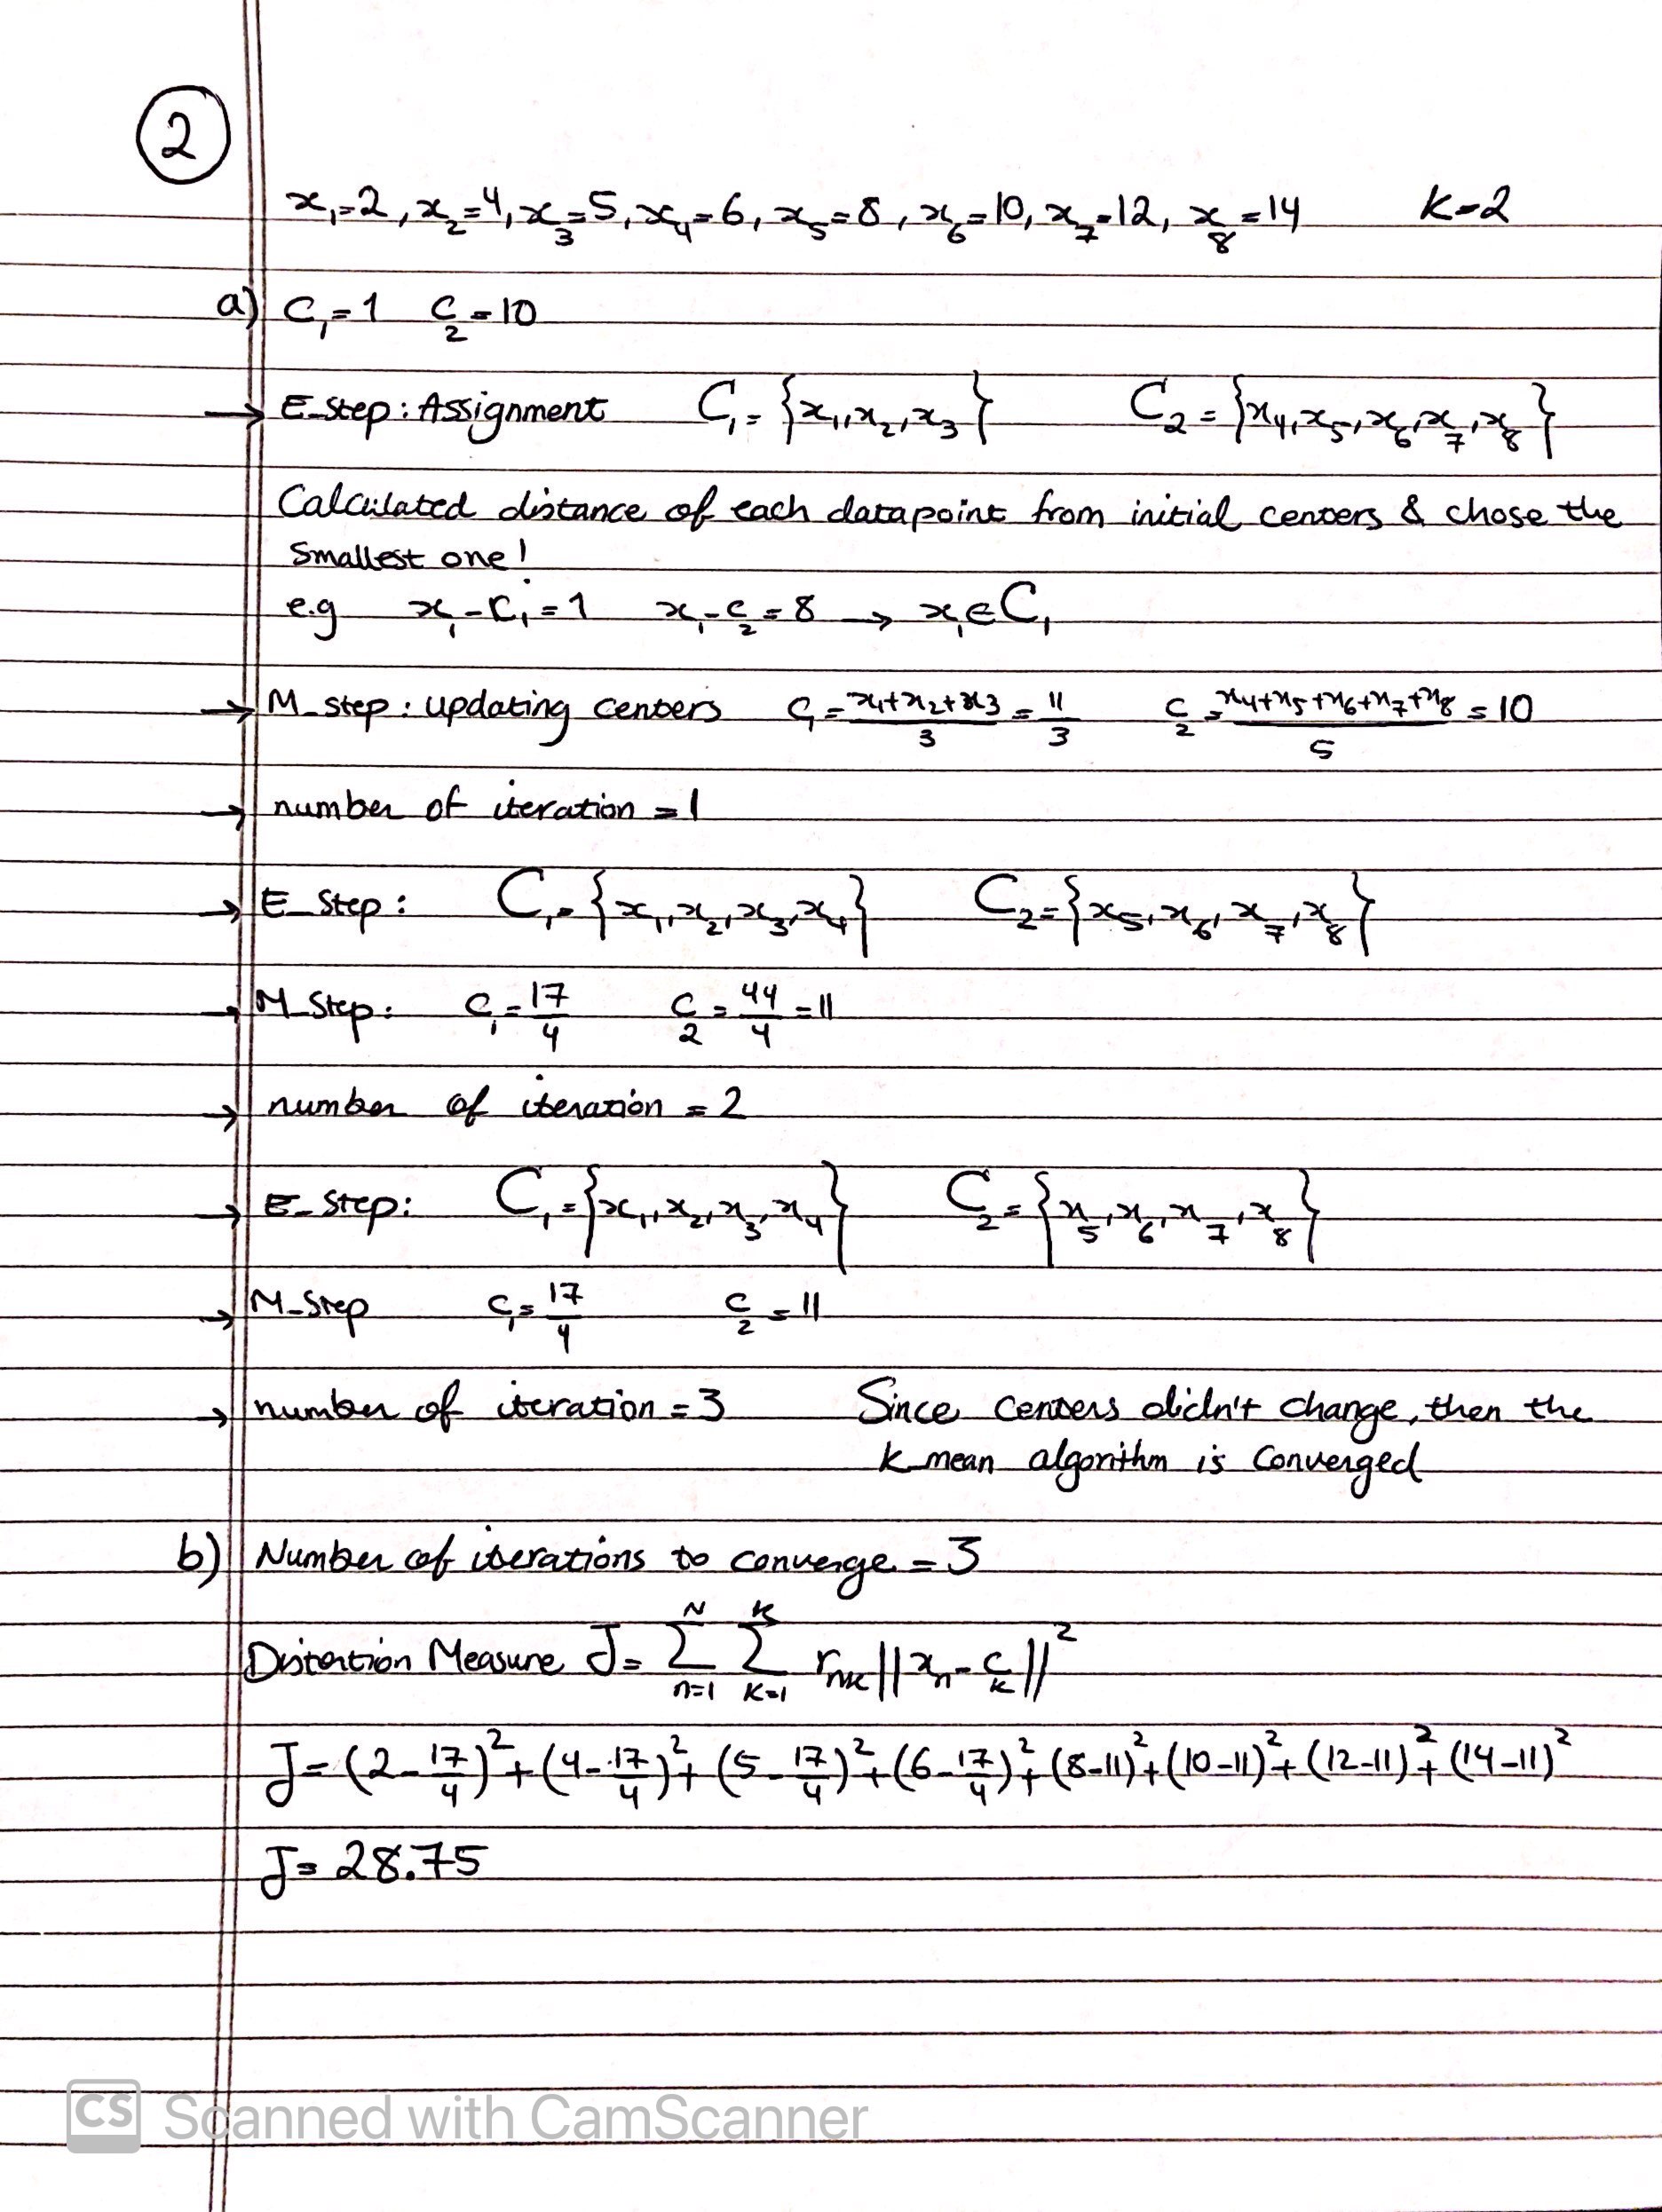 2
x₁=2, x₂=4, x₃=5, x₄=6, x₅=8, x₆=10, x₇=12, x₈=14 K=2
a) c₁=1 c₂=10
→ E-step: Assignment C₁={x₁,x₂,x₃} C₂={x₄,x₅,x₆,x₇,x₈}
Calculated distance of each datapoint from initial centers & chose the
smallest one!
e.g x₁-c₁=1 x₁-c₂=8 → x₁∈C₁
→ M-step: updating centers c₁=(x₁+x₂+x₃)/3=11/3 c₂=(x₄+x₅+x₆+x₇+x₈)/5=10
→ number of iteration = 1
→ E-step: C₁={x₁,x₂,x₃,x₄} C₂={x₅,x₆,x₇,x₈}
→ M-step: c₁=17/4 c₂=44/4=11
→ number of iteration = 2
→ E-step: C₁={x₁,x₂,x₃,x₄} C₂={x₅,x₆,x₇,x₈}
→ M-step c₁=17/4 c₂=11
→ number of iteration = 3 Since centers didn't change, then the
k mean algorithm is converged
b) Number of iterations to converge = 3
Distortion Measure J= Σₙ₌₁ᴺ Σₖ₌₁ᴷ rₙₖ||xₙ-cₖ||²
J=(2-17/4)²+(4-17/4)²+(5-17/4)²+(6-17/4)²+(8-11)²+(10-11)²+(12-11)²+(14-11)²
J= 28.75
CS Scanned with CamScanner